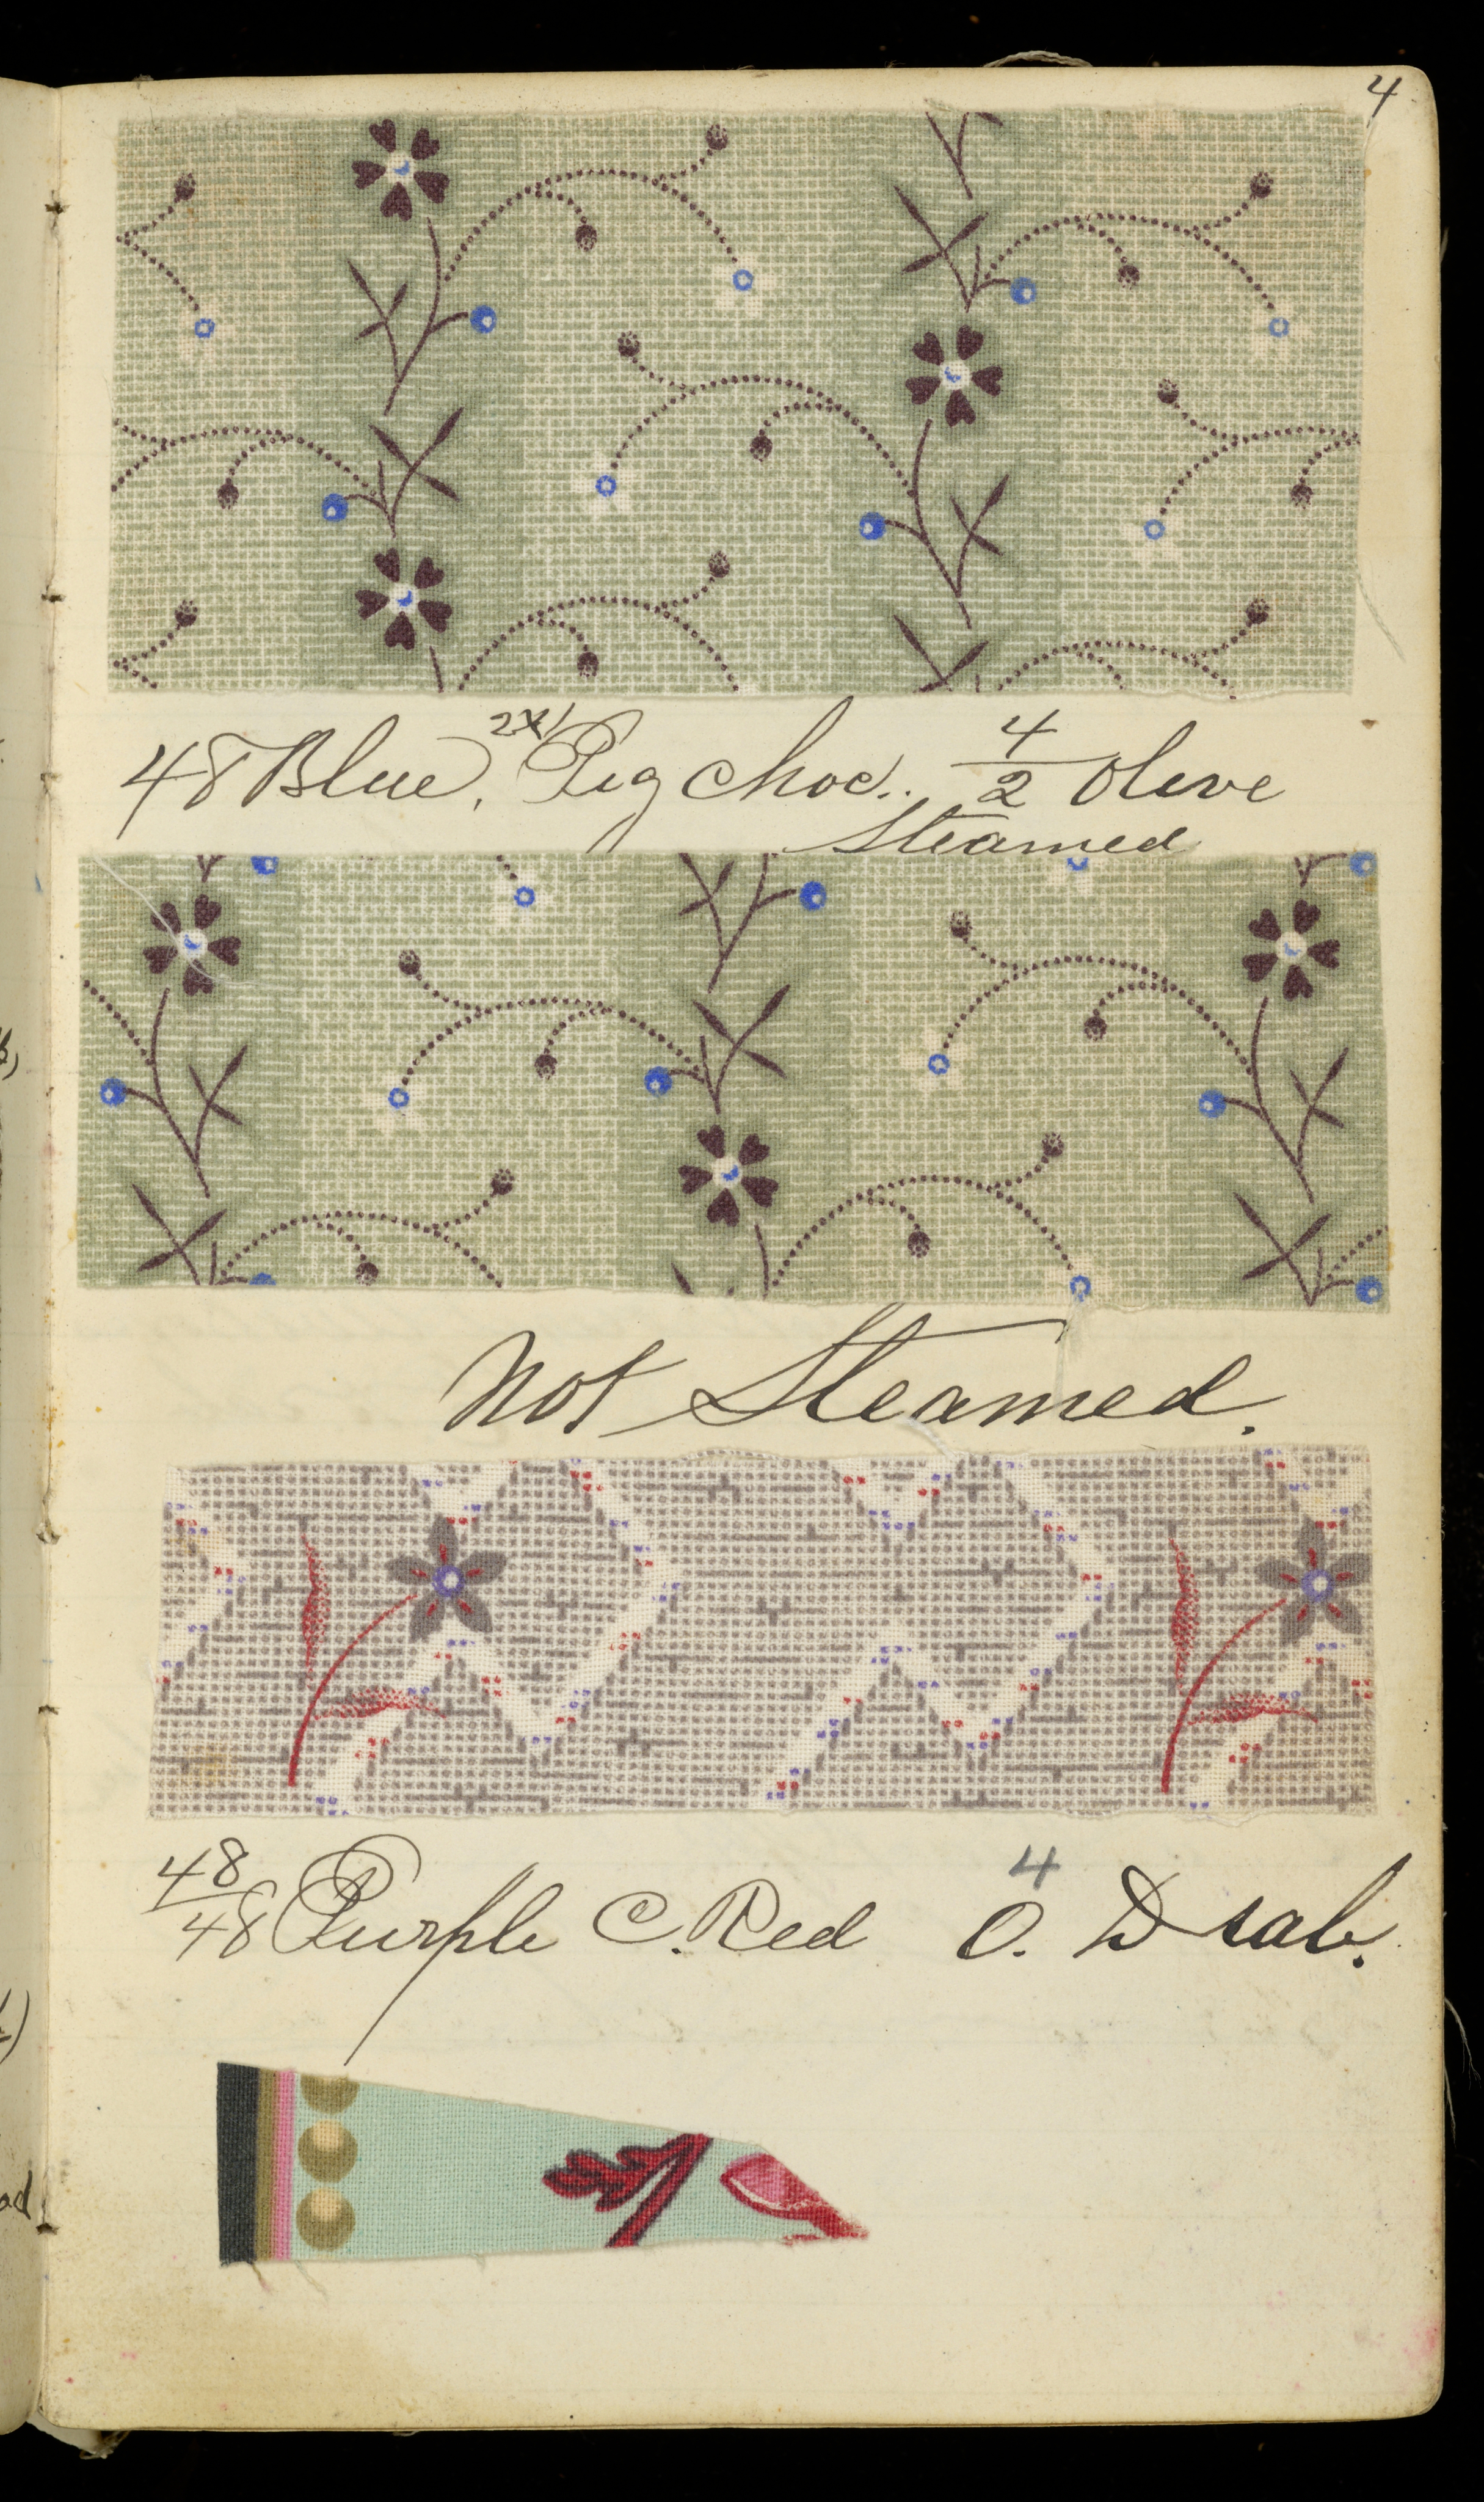 4
2x1
48 Blue, Pig Choc. 4/2 Olive
Steamed
Not Steamed.
4
48/48 Purple C. Red O. Drab.